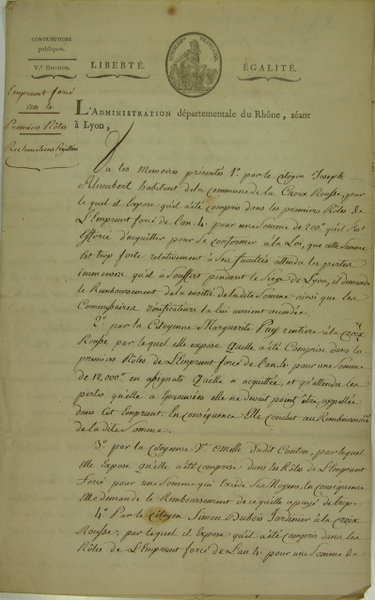 CONTRIBUTIONS
publiques.
V.e Division.
LIBERTÉ.
ÉGALITÉ.
Emprunt forcé
an 4
Premiers Rôles
Réclamations Rejettées
L'ADMINISTRATION départementale du Rhône, séant
à Lyon,
Vu les Memoires présentés 1º par le citoyen Joseph
habitant de la commune de la Croix Rousse, par
lequel il Expose qu'il a été compris dans les premiers Rôles de
L'Emprunt forcé de l'an 4. pour une somme de 200" qu'il s'est
Efforcé d'acquitter pour se conformer à la Loi, que cette somme
Est trop forte relativement à ses facultés attendu les pertes
immenses qu'il a souffert pendant le siége de Lyon, il demande
le Remboursement de la moitié de la dite somme ainsi que les
Commissaires vérificateurs la lui avoient accordée.
2º par la Citoyenne Marguerite Puy rentiere à la croix
Rousse par lequel elle expose Quelle a été Comprise dans les
premiers Rôles de L'Emprunt forcé de l'an 4. pour une somme
de 12,000" en assignats Qu'elle a acquittée, et qu'attendu les
pertes qu'elle a Eprouvées elle ne devoit point être appellée
dans cet Emprunt. En conséquence Elle conclut au Remboursement
de la dite somme.
3º par la citoyenne Vᵉ dudit Canton, par lequel
Elle Expose qu'elle a été comprise dans les Rôles de l'Emprunt
Forcé pour une somme qui Excède ses Moyens, En conséquence
Elle demande le Remboursement de ce qu'elle a payé de trop.
4º Par le citoyen Simon Dubois Jardinier à la croix
Rousse, par lequel il Expose qu'il a été compris dans les
Rôles de L'Emprunt forcé de L'an 4. pour une Somme de